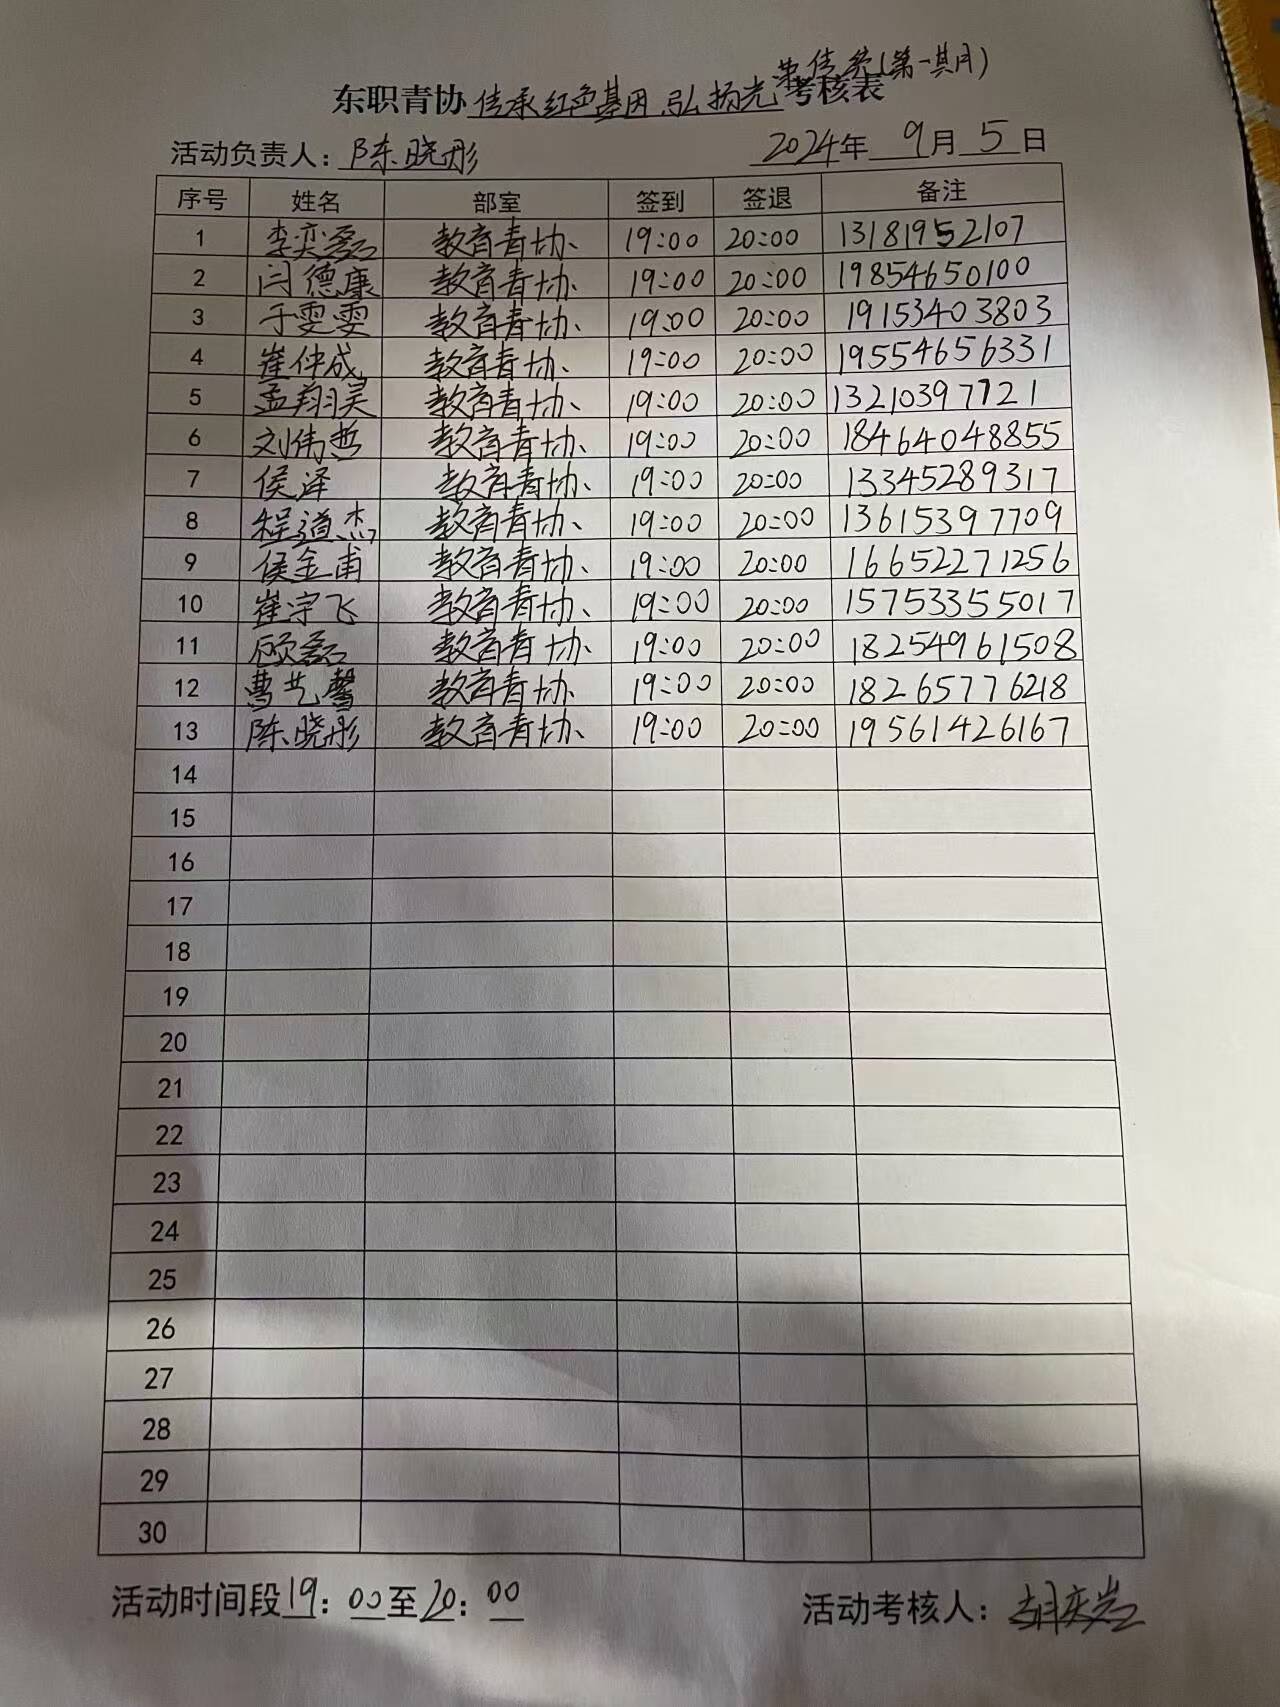 荣传统(第一期)
东职青协传承红色基因,弘扬光考核表
活动负责人:陈晓彤 2024年9月5日
序号 姓名 部室 签到 签退 备注
1 李奕磊 教育青协 19:00 20:00 13181952107
2 闫德康 教育青协 19:00 20:00 19854650100
3 于雯雯 教育青协 19:00 20:00 19153403803
4 崔仲成 教育青协 19:00 20:00 19554656331
5 孟翔昊 教育青协 19:00 20:00 13210397721
6 刘伟哲 教育青协 19:00 20:00 18464048855
7 侯泽 教育青协 19:00 20:00 13345289317
8 程道杰 教育青协 19:00 20:00 13615397709
9 侯金甫 教育青协 19:00 20:00 16652271256
10 崔宇飞 教育青协 19:00 20:00 15753355017
11 顾磊 教育青协 19:00 20:00 18254961508
12 曹艺馨 教育青协 19:00 20:00 18265776218
13 陈晓彤 教育青协 19:00 20:00 19561426167
14
15
16
17
18
19
20
21
22
23
24
25
26
27
28
29
30
活动时间段19:00至20:00 活动考核人:胡庆岩